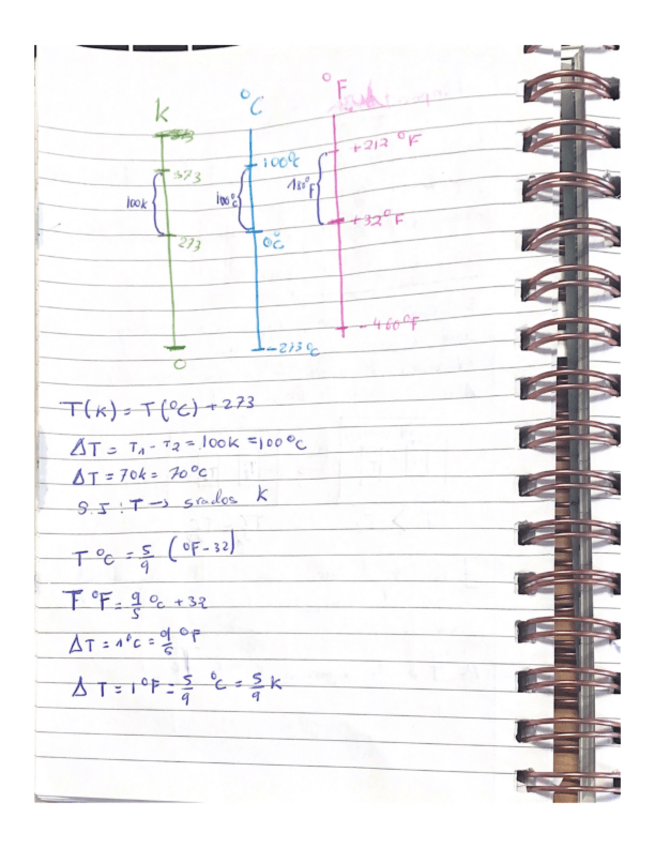 K
°C
°F
373
100k
273
0
100°C
100°C
0°C
-273°C
+212 °F
180°F
+32°F
-460°F
T(K) = T(°C) + 273
ΔT = T1 - T2 = 100K = 100°C
ΔT = 70K = 70°C
S.I : T → grados K
T °C = 5/9 (°F - 32)
T °F = 9/5 °C + 32
ΔT = 1°C = 9/5 °F
ΔT = 1°F = 5/9 °C = 5/9 K